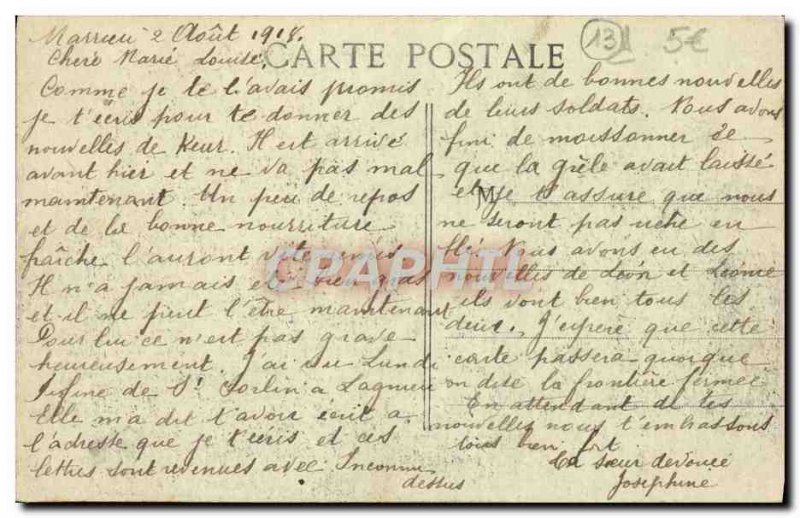 2 Août 1918.
CARTE POSTALE
13
5€
Chere Marie Louise,
Comme je te l'avais promis
je t'écris pour te donner des
nouvelles de Keur. Il est arrivé
avant hier et ne va pas mal
maintenant. Un peu de repos
et de la bonne nourriture
fraîche l'auront vite remis
Il n'a jamais été bien gras
et il ne peut l'être maintenant
Pour lui ce n'est pas grave
heureusement. J'ai vu Lundi
de St Sorlin a Lagnieu
Elle m'a dit t'avoir écrit a
l'adresse que je t'écris et ces
lettres sont revenues avec Inconnu
dessus
Ils ont de bonnes nouvelles
de leurs soldats. Nous avons
fini de moissonner ce
que la grêle avait laissé
et je t'assure que nous
ne seront pas riche en
blé. Nous avons eu des
nouvelles de Léon et Léonie
ils vont bien tous les
deux. J'espère que cette
carte passera quoique
on dise la frontière fermée
En attendant de tes
nouvelles nous t'embrassons
tous bien fort
ta soeur dévouée
Joséphine
CPAPHIL